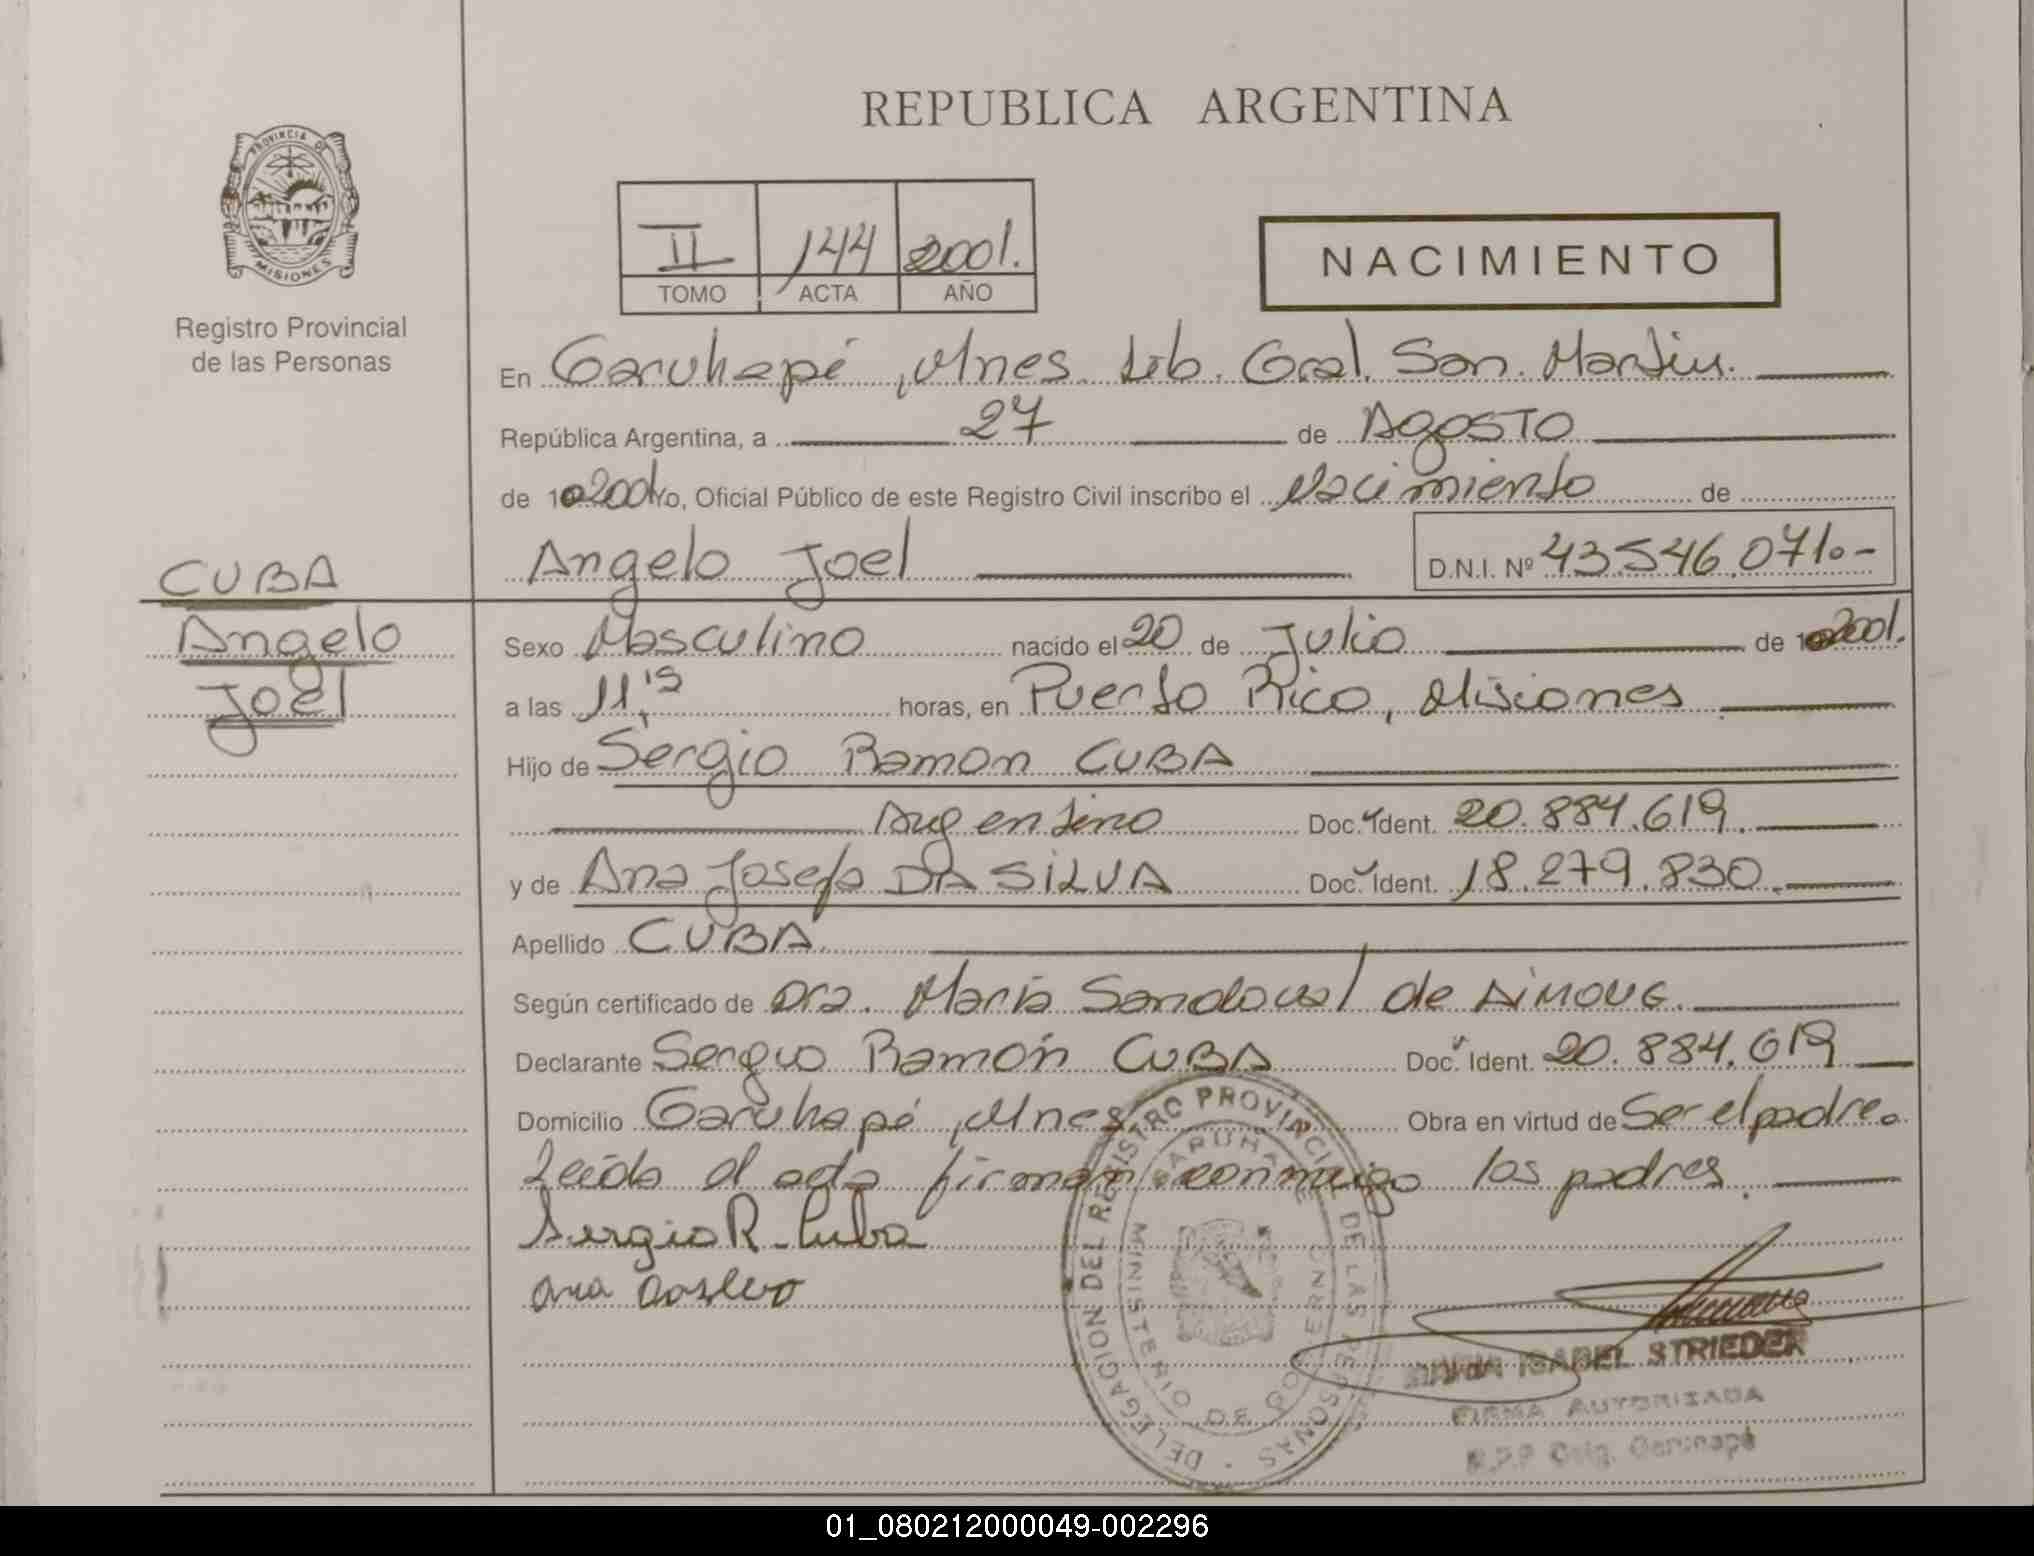 REPUBLICA ARGENTINA
PROVINCIA DE
MISIONES
Registro Provincial
de las Personas
II 144 2001.
TOMO ACTA AÑO
NACIMIENTO
En Garuhapé, Mnes. Lib. Gral. San. Martin.
República Argentina, a 27 de Agosto
de 2001 Yo, Oficial Público de este Registro Civil inscribo el Nacimiento de
CUBA
Angelo Joel
D.N.I. Nº 43.546.071.-
Angelo
Joel
Sexo Masculino nacido el 20 de Julio de 2001.
a las 11,15 horas, en Puerto Rico, Misiones
Hijo de Sergio Ramon CUBA
Argentino Doc. Ident. 20.884.619.
y de Ana Josefa DA SILVA Doc. Ident. 18.279.830.
Apellido CUBA.
Según certificado de Dra. Maria Sandoval de
Declarante Sergio Ramón CUBA Doc. Ident. 20.884.619
Domicilio Garuhapé, Mnes. Obra en virtud de Ser el padre.
Leida el acta firman conmigo los padres.
Sergio R. Cuba
Ana
DELEGACION DEL REGISTRO PROVINCIAL DE LAS PERSONAS
GARUHAPE
MINISTERIO DE GOBIERNO
MARIA ISABEL STRIEDER
FIRMA AUTORIZADA
R.P.P. Deleg. Garuhapé
01_080212000049-002296